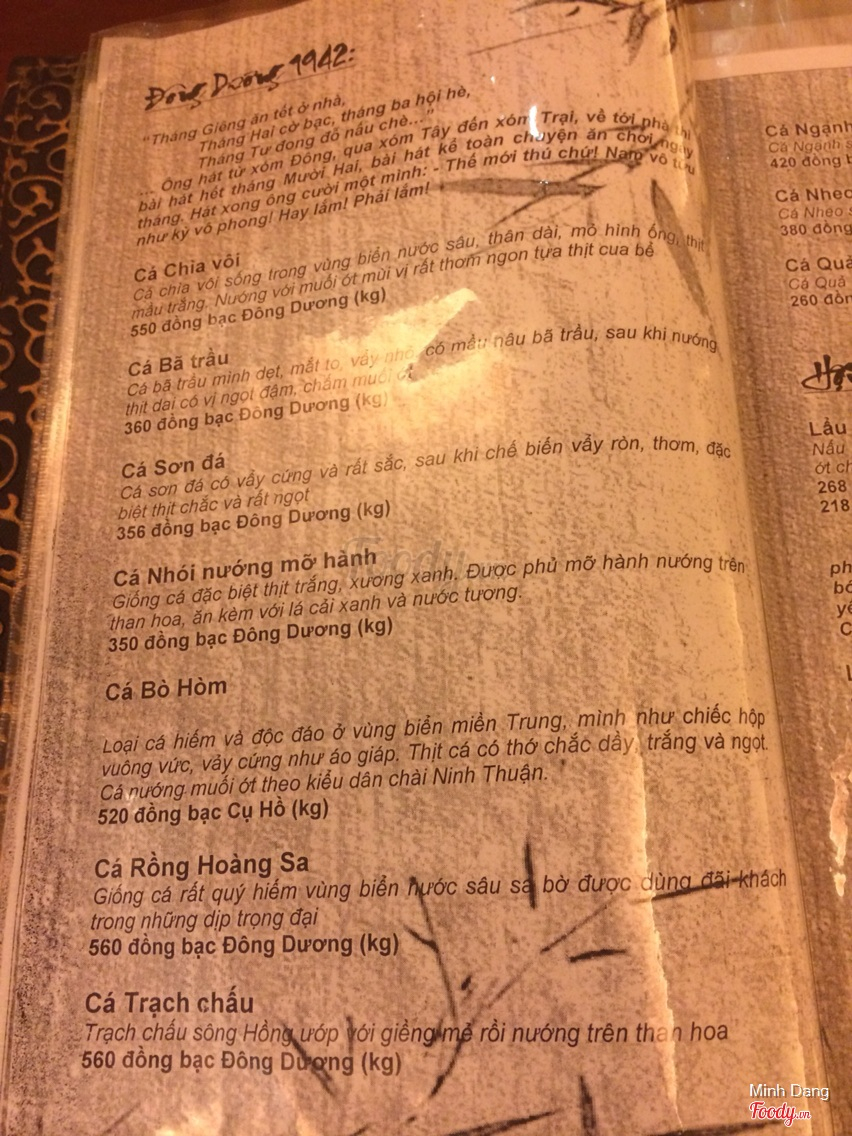 Đông Dương 1942:
"Tháng Giêng ăn tết ở nhà,
Tháng Hai cờ bạc, tháng ba hội hè,
Tháng Tư đong đỗ nấu chè..."
... Ông hát từ xóm Đông, qua xóm Tây đến xóm Trại, về tới phà thì
bài hát hết tháng Mười Hai, bài hát kể toàn chuyện ăn chơi ngày
tháng. Hát xong ông cười một mình: - Thế mới thú chứ! Nam vô tửu
như kỳ vô phong! Hay lắm! Phải lắm!
Cá Chìa vôi
Cá chìa vôi sống trong vùng biển nước sâu, thân dài, mỏ hình ống, thịt
mầu trắng. Nướng với muối ớt mùi vị rất thơm ngon tựa thịt cua bể
550 đồng bạc Đông Dương (kg)
Cá Bã trầu
Cá bã trầu mình dẹt, mắt to, vẩy nhỏ, có mầu nâu bã trầu, sau khi nướng
thịt dai có vị ngọt đậm, chấm muối
360 đồng bạc Đông Dương (kg)
Cá Sơn đá
Cá sơn đá có vẩy cứng và rất sắc, sau khi chế biến vẩy ròn, thơm, đặc
biệt thịt chắc và rất ngọt
356 đồng bạc Đông Dương (kg)
Cá Nhói nướng mỡ hành
Giống cá đặc biệt thịt trắng, xương xanh. Được phủ mỡ hành nướng trên
than hoa, ăn kèm với lá cải xanh và nước tương.
350 đồng bạc Đông Dương (kg)
Cá Bò Hòm
Loại cá hiếm và độc đáo ở vùng biển miền Trung, mình như chiếc hộp
vuông vức, vảy cứng như áo giáp. Thịt cá có thớ chắc dầy, trắng và ngọt.
Cá nướng muối ớt theo kiểu dân chài Ninh Thuận.
520 đồng bạc Cụ Hồ (kg)
Cá Rồng Hoàng Sa
Giống cá rất quý hiếm vùng biển nước sâu sa bờ được dùng đãi khách
trong những dịp trọng đại
560 đồng bạc Đông Dương (kg)
Cá Trạch chấu
Trạch chấu sông Hồng ướp với giềng mẻ rồi nướng trên than hoa
560 đồng bạc Đông Dương (kg)
Cá Ngạnh
Cá Ngạnh s
420 đồng b
Cá Nheo
Cá Nheo s
380 đồng
Cá Quả
Cá Quả
260 đồn
Lẩu
Nấu
ớt ch
268
218
ph
yế
C
L
Foody
Minh Dang
Foody.vn